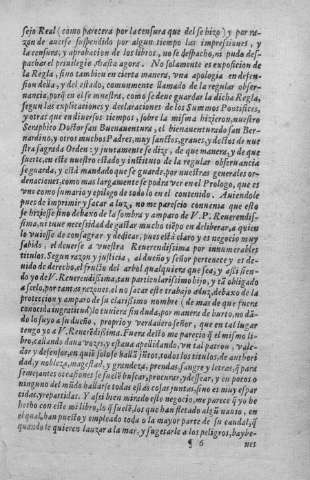 sejo Real (como parecera por la censura que del se hizo) y por ra-
zon de auerse suspendido por algun tiempo las impressiones, y
la censura, y aprobacion de los libros, no se despacho, ni pudo des-
pachar el priuilegio hasta agora. No solamente es exposicion de
la Regla, sino tambien en cierta manera, vna apologia en defen-
sion della, y del estado, comunmente llamado de la regular obser-
uancia, porq̃ en el se muestra, como se deue guardar la dicha Regla,
segun las explicationes y declaraciones de los Summos Pontifices,
y otras que en diuersos tiempos, sobre la misma hizieron, nuestro
Seraphico Doctor san Buenauentura, el bienauenturado san Ber-
nardino, y otros muchos Padres, muy sanctos, graues, y doctos de nue
stra sagrada Orden: y juntamente se dize, de que manera, y de que
suerte, en este nuestro estado y instituto de la regular obseruancia
se guarda, y està mandado que se guarde, por nuestras generales or-
denaciones, como mas largamente se podra ver en el Prologo, que es
vno como sumario y epilogo de todo lo en el contenido. Auiendole
pues de imprimir y sacar a luz, no me parescio conuenia que esto
se hiziesse sino debaxo de la sombra y amparo de V. P. Reuerendis-
sima, ni tuue necesidad de gastar mucho tiẽpo en deliberar, a quien
lo vuiesse de consagrar y dedicar, pues està claro y es negocio muy
sabido, el deuerse a vuestra Reuerendissima por innumerables
titulos. Segun razon y justicia, al dueño y señor pertenece y es de-
uido de derecho, el fructo del arbol qualquiera que sea, y assi sien-
do yo de V. Reuerendissima, tan particularissimo hijo, y tã obligado
a serlo, por tantas razones, al no sacar este trabajo a luz, debaxo de la
proteccion y amparo de su clarissimo nombre (de mas de que fuera
conocida ingratitud) lo tuuiera sin duda, por manera de hurto, no dã-
do lo suyo a su dueño, proprio y verdadero señor, que en tal lugar
tengo yo a V. Reuerẽdissima. Fuera desto me parecio q̃ el mismo li-
bro, callando daua vozes, y estaua apellidando, vn tal patron, vale-
dor y defensor, en quiẽ solo se hallã jũtos, todos los titulos, de authori
dad, y nobleza, magestad, y grandeza, prendas, sangre y letras, q̃ para
semejantes occasiones se suelẽ buscar, procurar, y dessear, y en pocos o
ninguno del mũdo hallarse todas estas cosas juntas, sino es muy espar
zidas, y repartidas. Y assi bien mirado este negocio, me parece q̃ yo he
hecho con este mi libro, lo q̃ suelẽ, los que han fletado algũ nauio, en
el qual, han puesto y empleado toda o la mayor parte de su caudal, q̃
quando le quieren lanzar a la mar, y sugetarle a los peligros, baybe-
¶ 6 nes